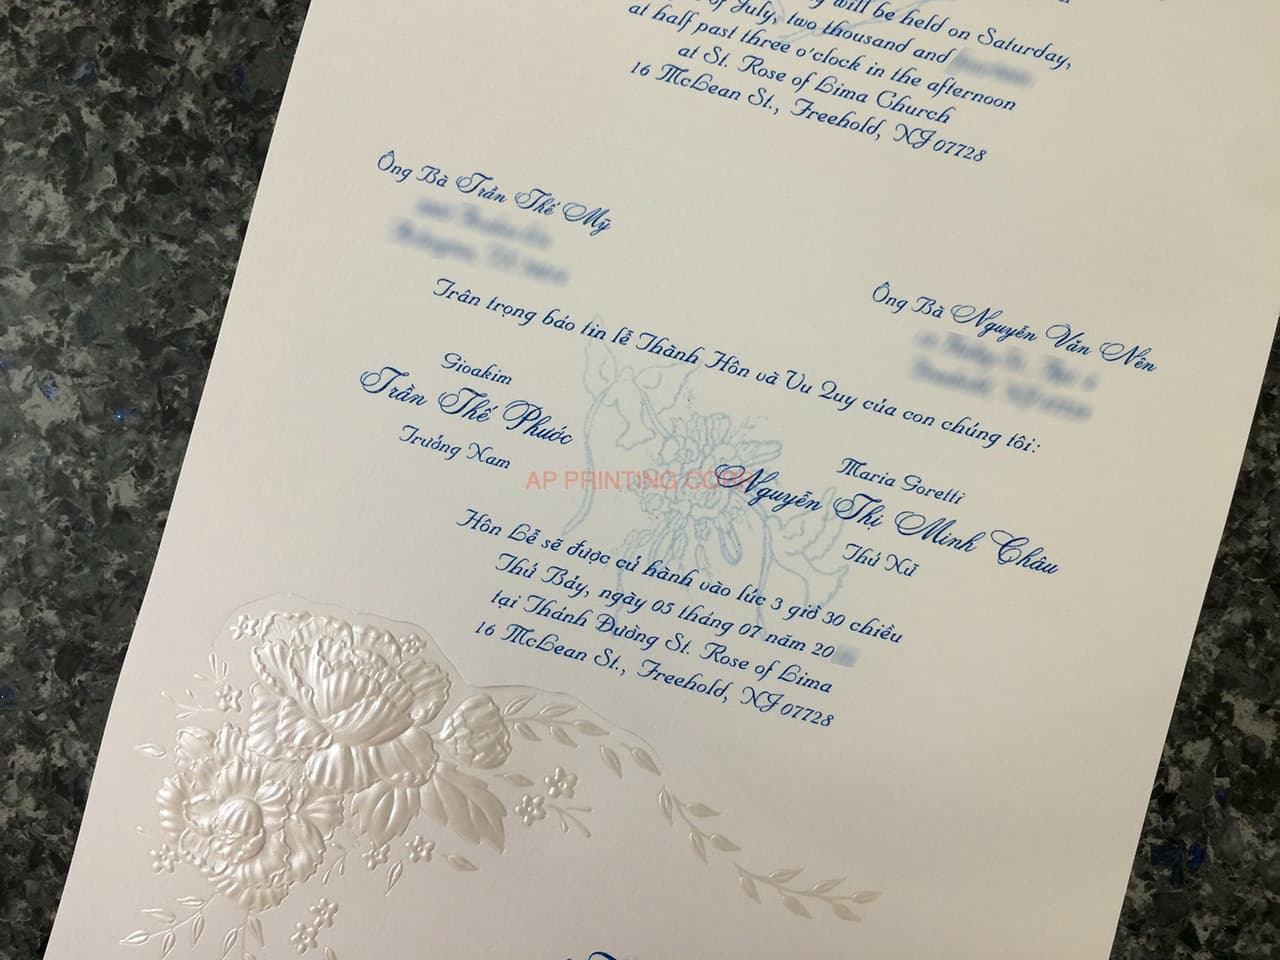 will be held on Saturday,
of July, two thousand and
at half past three o'clock in the afternoon
at St. Rose of Lima Church
16 McLean St., Freehold, NJ 07728
Ông Bà Trần Thế Mỹ
Ông Bà Nguyễn Văn Nên
Trân trọng báo tin lễ Thành Hôn và Vu Quy của con chúng tôi:
Gioakim
Trần Thế Phước
Trưởng Nam
Maria Goretti
Nguyễn Thị Minh Châu
Thứ Nữ
AP PRINTING CORP
Hôn Lễ sẽ được cử hành vào lúc 3 giờ 30 chiều
Thứ Bảy, ngày 05 tháng 07 năm 20
tại Thánh Đường St. Rose of Lima
16 McLean St., Freehold, NJ 07728